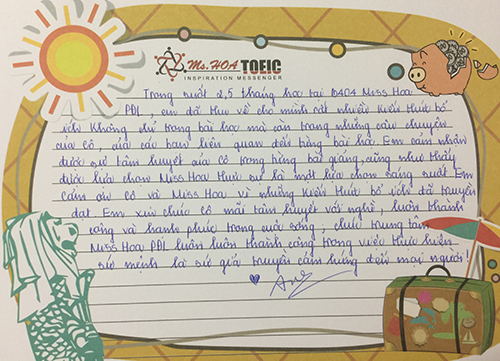 Ms.HOA TOEIC
INSPIRATION MESSENGER
Trong suốt 2,5 tháng học tại B404 Miss Hoa
PDL, em đã thu về cho mình rất nhiều kiến thức bổ
ích không chỉ trong bài học mà còn trong những câu chuyện
của cô, của các bạn liên quan đến từng bài học. Em cảm nhận
được sự tâm huyết của cô trong từng bài giảng, cũng như thấy
được lựa chọn Miss Hoa thực sự là một lựa chọn sáng suốt. Em
cảm ơn cô và Miss Hoa vì những kiến thức bổ ích đã truyền
đạt. Em xin chúc cô mãi tâm huyết với nghề, luôn thành
công và hạnh phúc trong cuộc sống, chúc trung tâm
Miss Hoa PDL luôn luôn thành công trong việc thực hiện
sứ mệnh là sứ giả truyền cảm hứng đến mọi người!